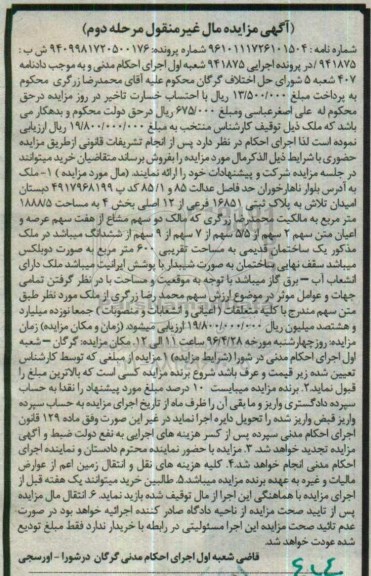 (آگهی مزایده مال غیرمنقول مرحله دوم)
شماره نامه : ۹۶۱۰۱۱۱۷۲۶۱۰۱۵۰۴ شماره پرونده: ۹۴۰۹۹۸۱۷۲۰۵۰۰۱۷۶ ش ب :
۹۴۱۸۷۵ /در پرونده اجرایی ۹۴۱۸۷۵ شعبه اول اجرای احکام مدنی و به موجب دادنامه
۴۰۷ شعبه ۵ شورای حل اختلاف گرگان محکوم علیه آقای محمدرضا زرگری محکوم
به پرداخت مبلغ ۱۳/۵۰۰/۰۰۰ ریال با احتساب خسارت تاخیر در روز مزایده درحق
محکوم له علی اصغرعباسی ومبلغ ۶۷۵/۰۰۰ ریال درحق دولت محکوم و بدهکار می
باشد که ملک ذیل توقیف کارشناس منتخب به مبلغ ۱۹/۸۰۰/۰۰۰/۰۰۰ ریال ارزیابی
نموده است لذا اجرای احکام در نظر دارد پس از انجام تشریفات قانونی ازطریق مزایده
حضوری با شرایط ذیل الذکرمال مورد مزایده را بفروش برساند متقاضیان خرید میتوانند
در جلسه مزایده شرکت و پیشنهادات خود را ارائه نمایند. (مال مورد مزایده ) ۱- ملک
به آدرس بلوار ناهارخوران حد فاصل عدالت ۸۵ و ۸۵/۱ کد پ ۴۹۱۷۹۶۸۱۹۹ دبستان
امیدان تلاش به پلاک ثبتی ۱۶۸۵۱ فرعی از ۱۲ اصلی بخش ۴ به مساحت ۱۸۸۸/۵
متر مربع به مالکیت محمدرضا زرگری که مالک دو سهم مشاع از هفت سهم عرصه و
اعیان متن سهم ۲ سهم از ۵/۵ سهم از ۷ سهم از ۹ سهم از ششدانگ میباشد در ملک
مذکور یک ساختمان قدیمی به مساحت تقریبی ۶۰۰ متر مربع به صورت دوبلکس
میباشد سقف نهایی ساختمان به صورت شیبدار با پوشش ایرانیت میباشد ملک دارای
انشعاب آب – برق گاز میباشد با توجه به موقعیت و مساحت با در نظر گرفتن تمامی
جهات و عوامل موثر در موضوع ارزش سهم محمد رضا زرگری از ملک مورد نظر طبق
متن سهم مندرج با کلیه متعلقات (اعیانی و انشعابات و منصوبات ) جمعا نوزده میلیارد
و هشتصد میلیون ریال ۱۹/۸۰۰/۰۰۰/۰۰۰ ارزیابی میشود (زمان و مکان مزایده) زمان
مزایده: روزچهارشنبه مورخه ۹۶/۴/۲۸ ساعت ۱۱ الی ۱۲. مکان مزایده: گرگان – شعبه
اول اجرای احکام مدنی در شورا (شرایط مزایده) ۱ مزایده از مبلغی که توسط کارشناس
تعیین شده زیر قیمت و عرف باشد شروع برنده مزایده کسی است که بالاترین مبلغ را
قبول نماید.۲. برنده مزایده میبایست ۱۰ درصد مبلغ مورد پیشنهاد را نقدا به حساب
سپرده دادگستری واریز و ما بقی آن را ظرف ماه از تاریخ اجرای مزایده به حساب سپرده
واریز قبض واریز شده را تحویل دایره اجرا نماید در غیر این صورت وفق ماده ۱۲۹ قانون
اجرای احکام مدنی سپرده پس از کسر هزینه های اجرایی به نفع دولت ضبط و آگهی
مزایده تجدید خواهد شد. ۳. مزایده با حضور نماینده محترم دادستان و نماینده اجرای
احکام مدنی انجام خواهد شد۴. کلیه هزینه های نقل و انتقال زمین اعم از عوارض
مالیات و غیره به عهده برنده مزایده میباشد.۵. طالبین خرید میتوانند یک هفته قبل از
اجرای مزایده با هماهنگی این اجرا از مال توقیف شده بازید نماید. ۶. انتقال مال مزایده
پس از تایید صحت مزایده از ناحیه دادگاه صادر کننده اجرائیه خواهد بود در صورت
عدم تائید صحت مزایده این اجرا مسئولیتی در رابطه با خریدار ندارد فقط مبلغ تودیع
شده عودت خواهد شد.
قاضی شعبه اول اجرای احکام مدنی گرگان درشورا - اورسجی